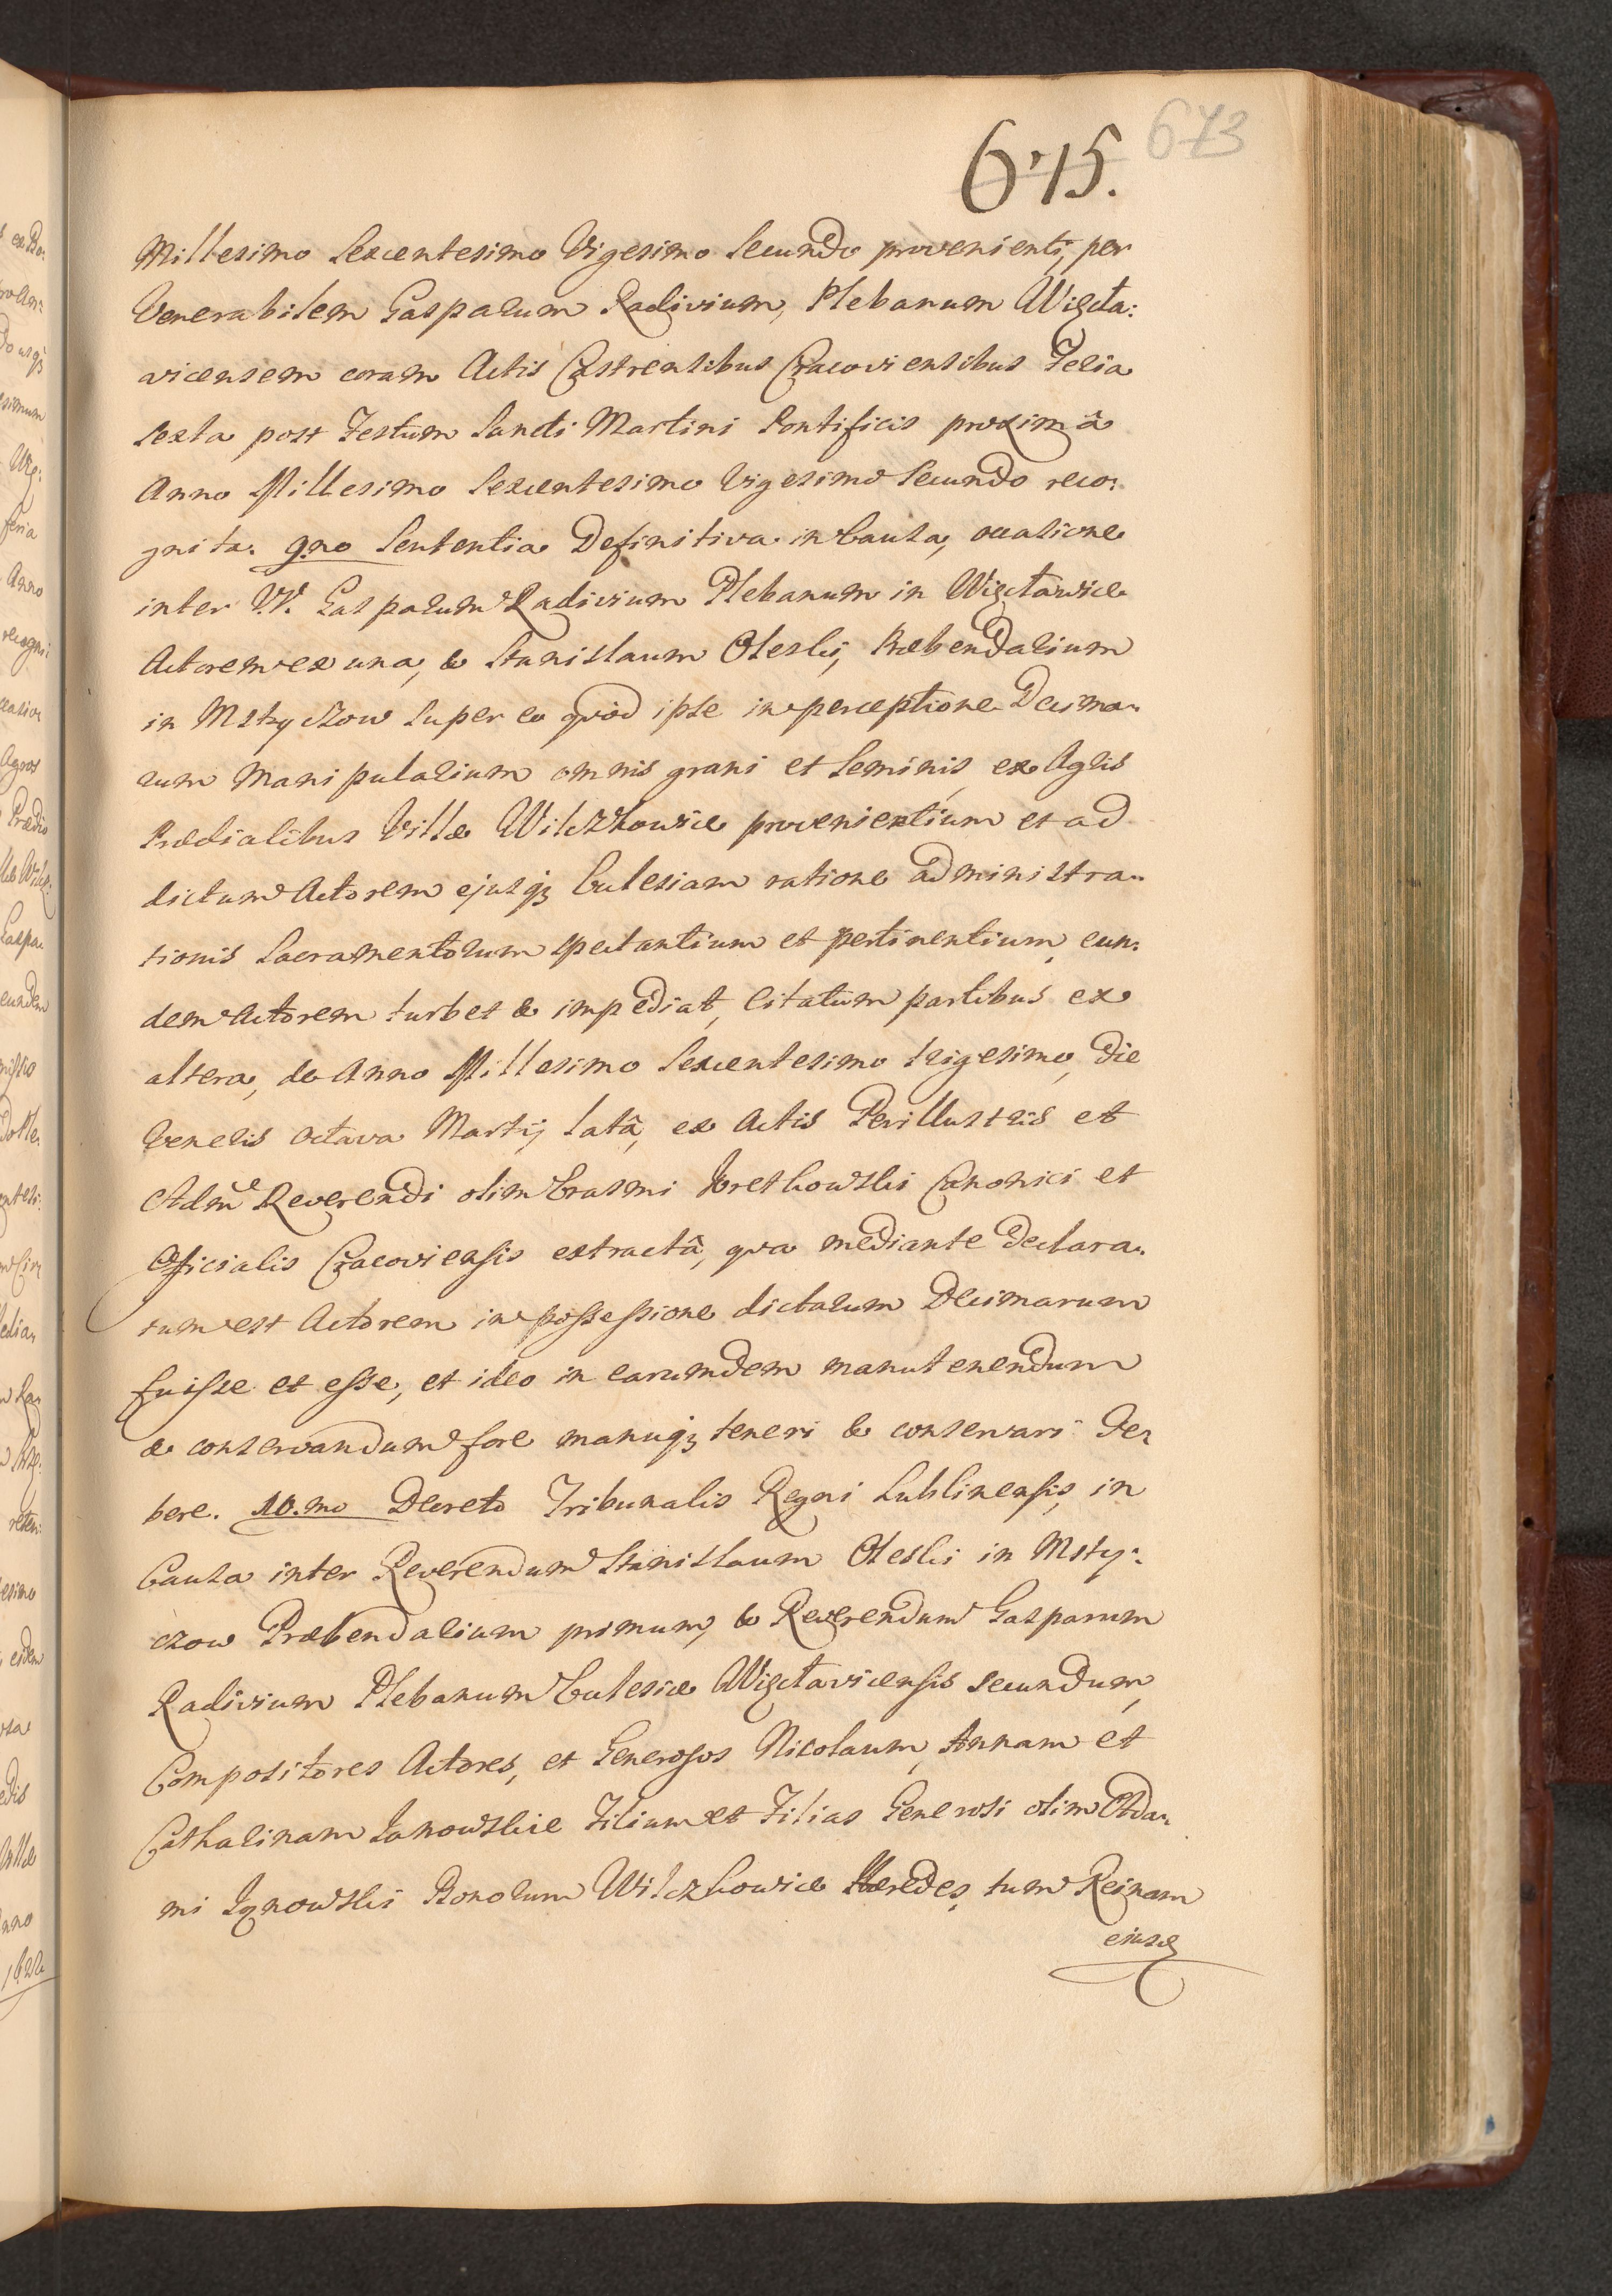 615. 673
Millesimo Sexcentesimo Vigesimo Secundo provenienti, per
Venerabilem Gasparum Radivium, Plebanum Więcła:
vicensem coram Actis Castrensibus Cracoviensibus Feria
Sexta post Festum Sancti Martini Pontificis proximâ
Anno Millesimo Sexcentesimo Vigesimo Secundo reco:
gnita. 9.no Sententia Definitiva in Causa, occasione
inter V. Gasparum Radivium Plebanum in Więcławice
Actorem ex una, & Stanislaum Oleski, Præbendarium
in Mstyczow super eo quòd ipse in perceptione Decima:
rum Manipularium omnis grani et Seminis, ex Agris
Prædialibus Villæ Wilczkowice provenientium et ad
dictum Actorem ejusq3 Ecclesiam ratione administra:
tionis Sacramentorum spectantium et pertinentium, eun:
dem Actorem turbet & impediat, Citatum partibus ex
altera, de Anno Millesimo Sexcentesimo trigesimo, die
Veneris octava Martij latâ, ex Actis Perillustris et
Adm̃ Reverendi olim Erasmi Kretkowski Canonici et
Officialis Cracoviensis extractâ, qva mediante declara:
tum est Actorem in possessione dictarum Decimarum
fuisse et esse, et ideo in earumdem manutenendum
& conservandum fore manuq3 teneri & conservari de:
bere. 10.mo Decreto Tribunalis Regni Lublinensis, in
Causa inter Reverendum Stanislaum Oleski in Msty:
czow Præbendarium primum, & Reverendum Gasparum
Radivium Plebanum Ecclesiæ Więcłavicensis secundum,
Compositores Actores, et Generosos Nicolaum, Annam et
Catharinam Janowskie Filium et Filias Generosi olim Ada:
mi Janowski Bonorum Wilczkowice Hæredes, tum Reinam
ejusd